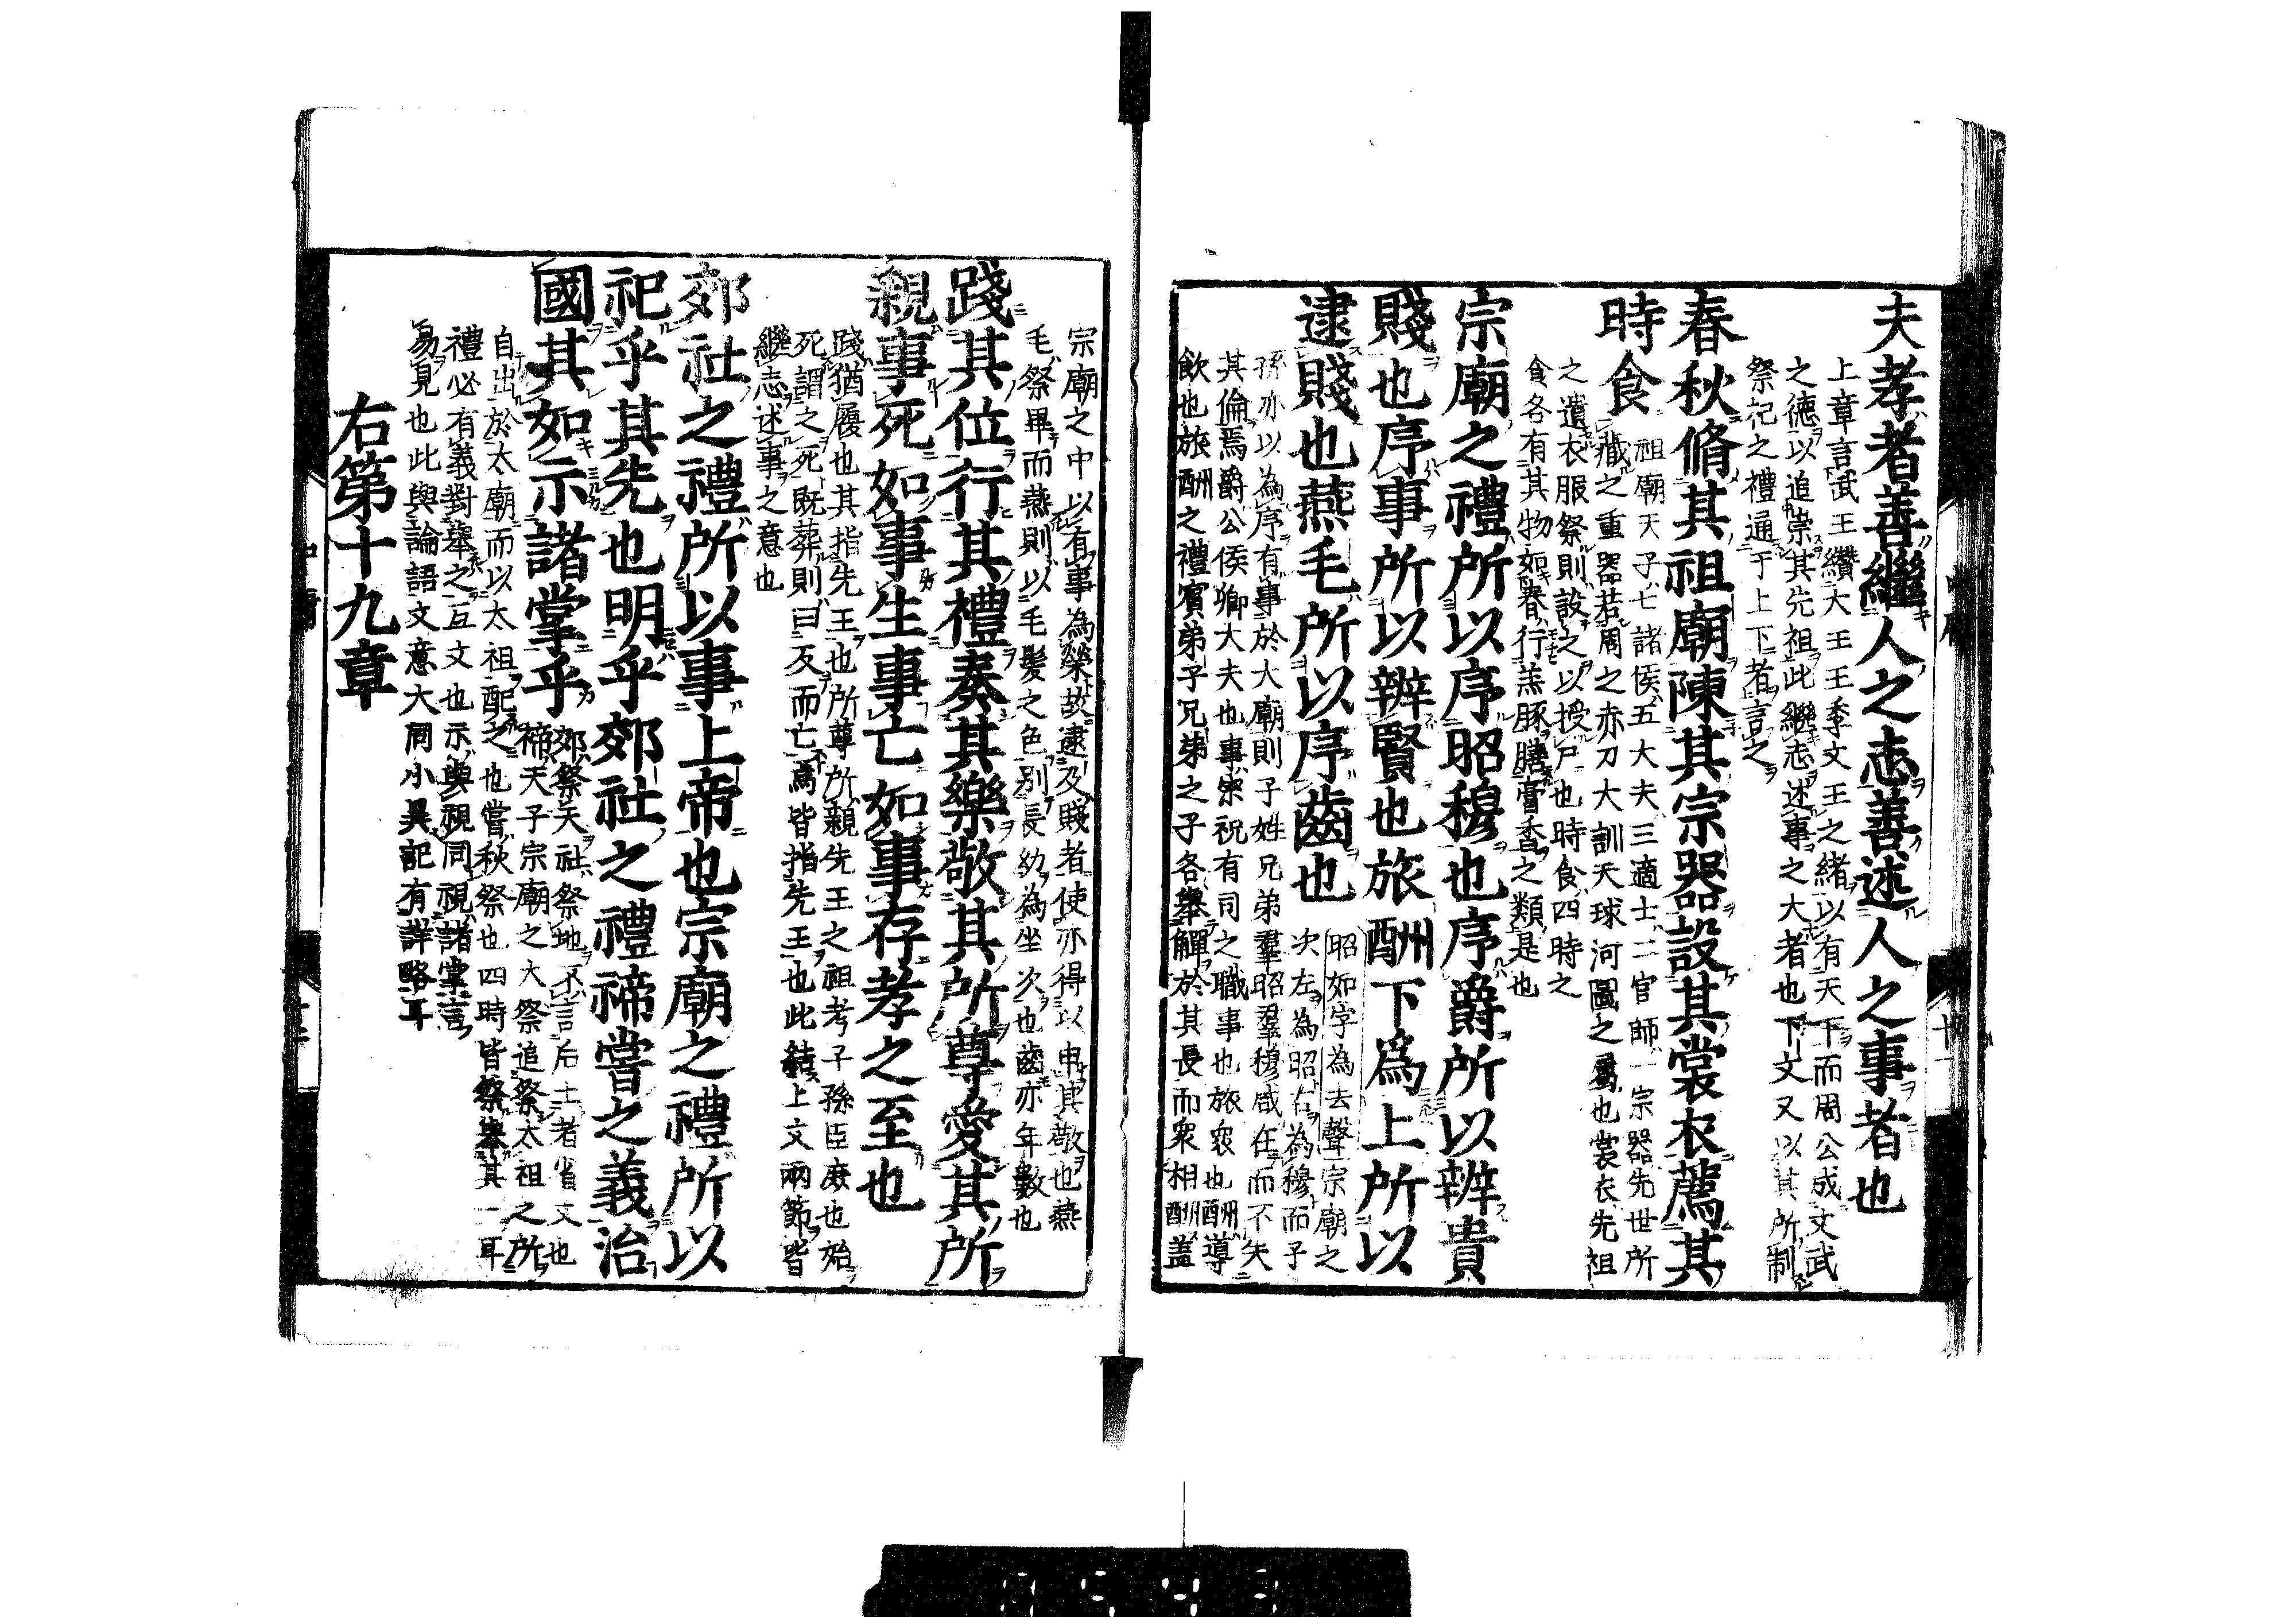 夫孝者善繼人之志善述人之事者也
上章言武王纘大王王季文王之緒以有天下而周公成文武
之德以追崇其先祖此繼志述事之大者也下文又以其所制
祭祀之禮通于上下者言之
春秋脩其祖廟陳其宗器設其裳衣薦其
時食
祖廟天子七諸侯五大夫三適士二官師一宗器先世所
藏之重器若周之赤刀大訓天球河圖之屬也裳衣先祖
之遺衣服祭則設之以授尸也時食四時之
食各有其物如春行羔豚膳膏香之類是也
宗廟之禮所以序昭穆也序爵所以辨貴
賤也序事所以辨賢也旅酬下爲上所以
逮賤也燕毛所以序齒也
昭如字為去聲宗廟之
次左為昭右為穆而子
孫亦以為序有事於太廟則子姓兄弟羣昭羣穆咸在而不失
其倫焉爵公侯卿大夫也事宗祝有司之職事也旅衆也酬導
飲也旅酬之禮賓弟子兄弟之子各舉觶於其長而衆相酬蓋
宗廟之中以有事為榮故逮及賤者使亦得以申其敬也燕
毛祭畢而燕則以毛髪之色別長幼為坐次也齒亦年數也
踐其位行其禮奏其樂敬其所尊愛其所
親事死如事生事亡如事存孝之至也
踐猶履也其指先王也所尊所親先王之祖考子孫臣庶也始
死謂之死既葬則曰反而亡焉皆指先王也此結上文兩節皆
繼志述事之意也
郊社之禮所以事上帝也宗廟之禮所以
祀乎其先也明乎郊社之禮禘嘗之義治
國其如示諸掌乎
郊祭天社祭地不言后土者省文也
禘天子宗廟之大祭追祭太祖之所
自出於太廟而以太祖配之也嘗秋祭也四時皆祭舉其一耳
禮必有義對舉之互文也示與視同視諸掌言
易見也此與論語文意大同小異記有詳略耳
右第十九章